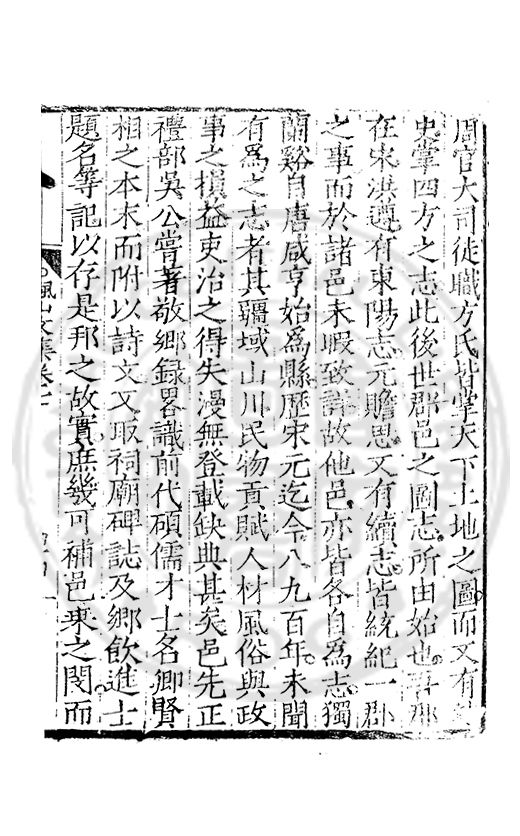 周官大司徒職方氏皆掌天下土地之圖而又有外
史掌四方之志此後世郡邑之圖志所由始也吾郡
在宋洪遵有東陽志元瞻思又有續志皆統紀一郡
之事而於諸邑未暇致詳故他邑亦皆各自為志獨
蘭谿自唐咸亨始為縣歷宋元迄今八九百年未聞
有為之志者其疆域山川民物貢賦人材風俗與政
事之損益吏治之得失漫無登載缺典甚矣邑先正
禮部吳公嘗著敬鄉錄畧識前代碩儒才士名卿賢
相之本末而附以詩文又取祠廟碑誌及鄉飲進士
題名等記以存是邦之故實庶幾可補邑乘之闕而
楓山文集卷